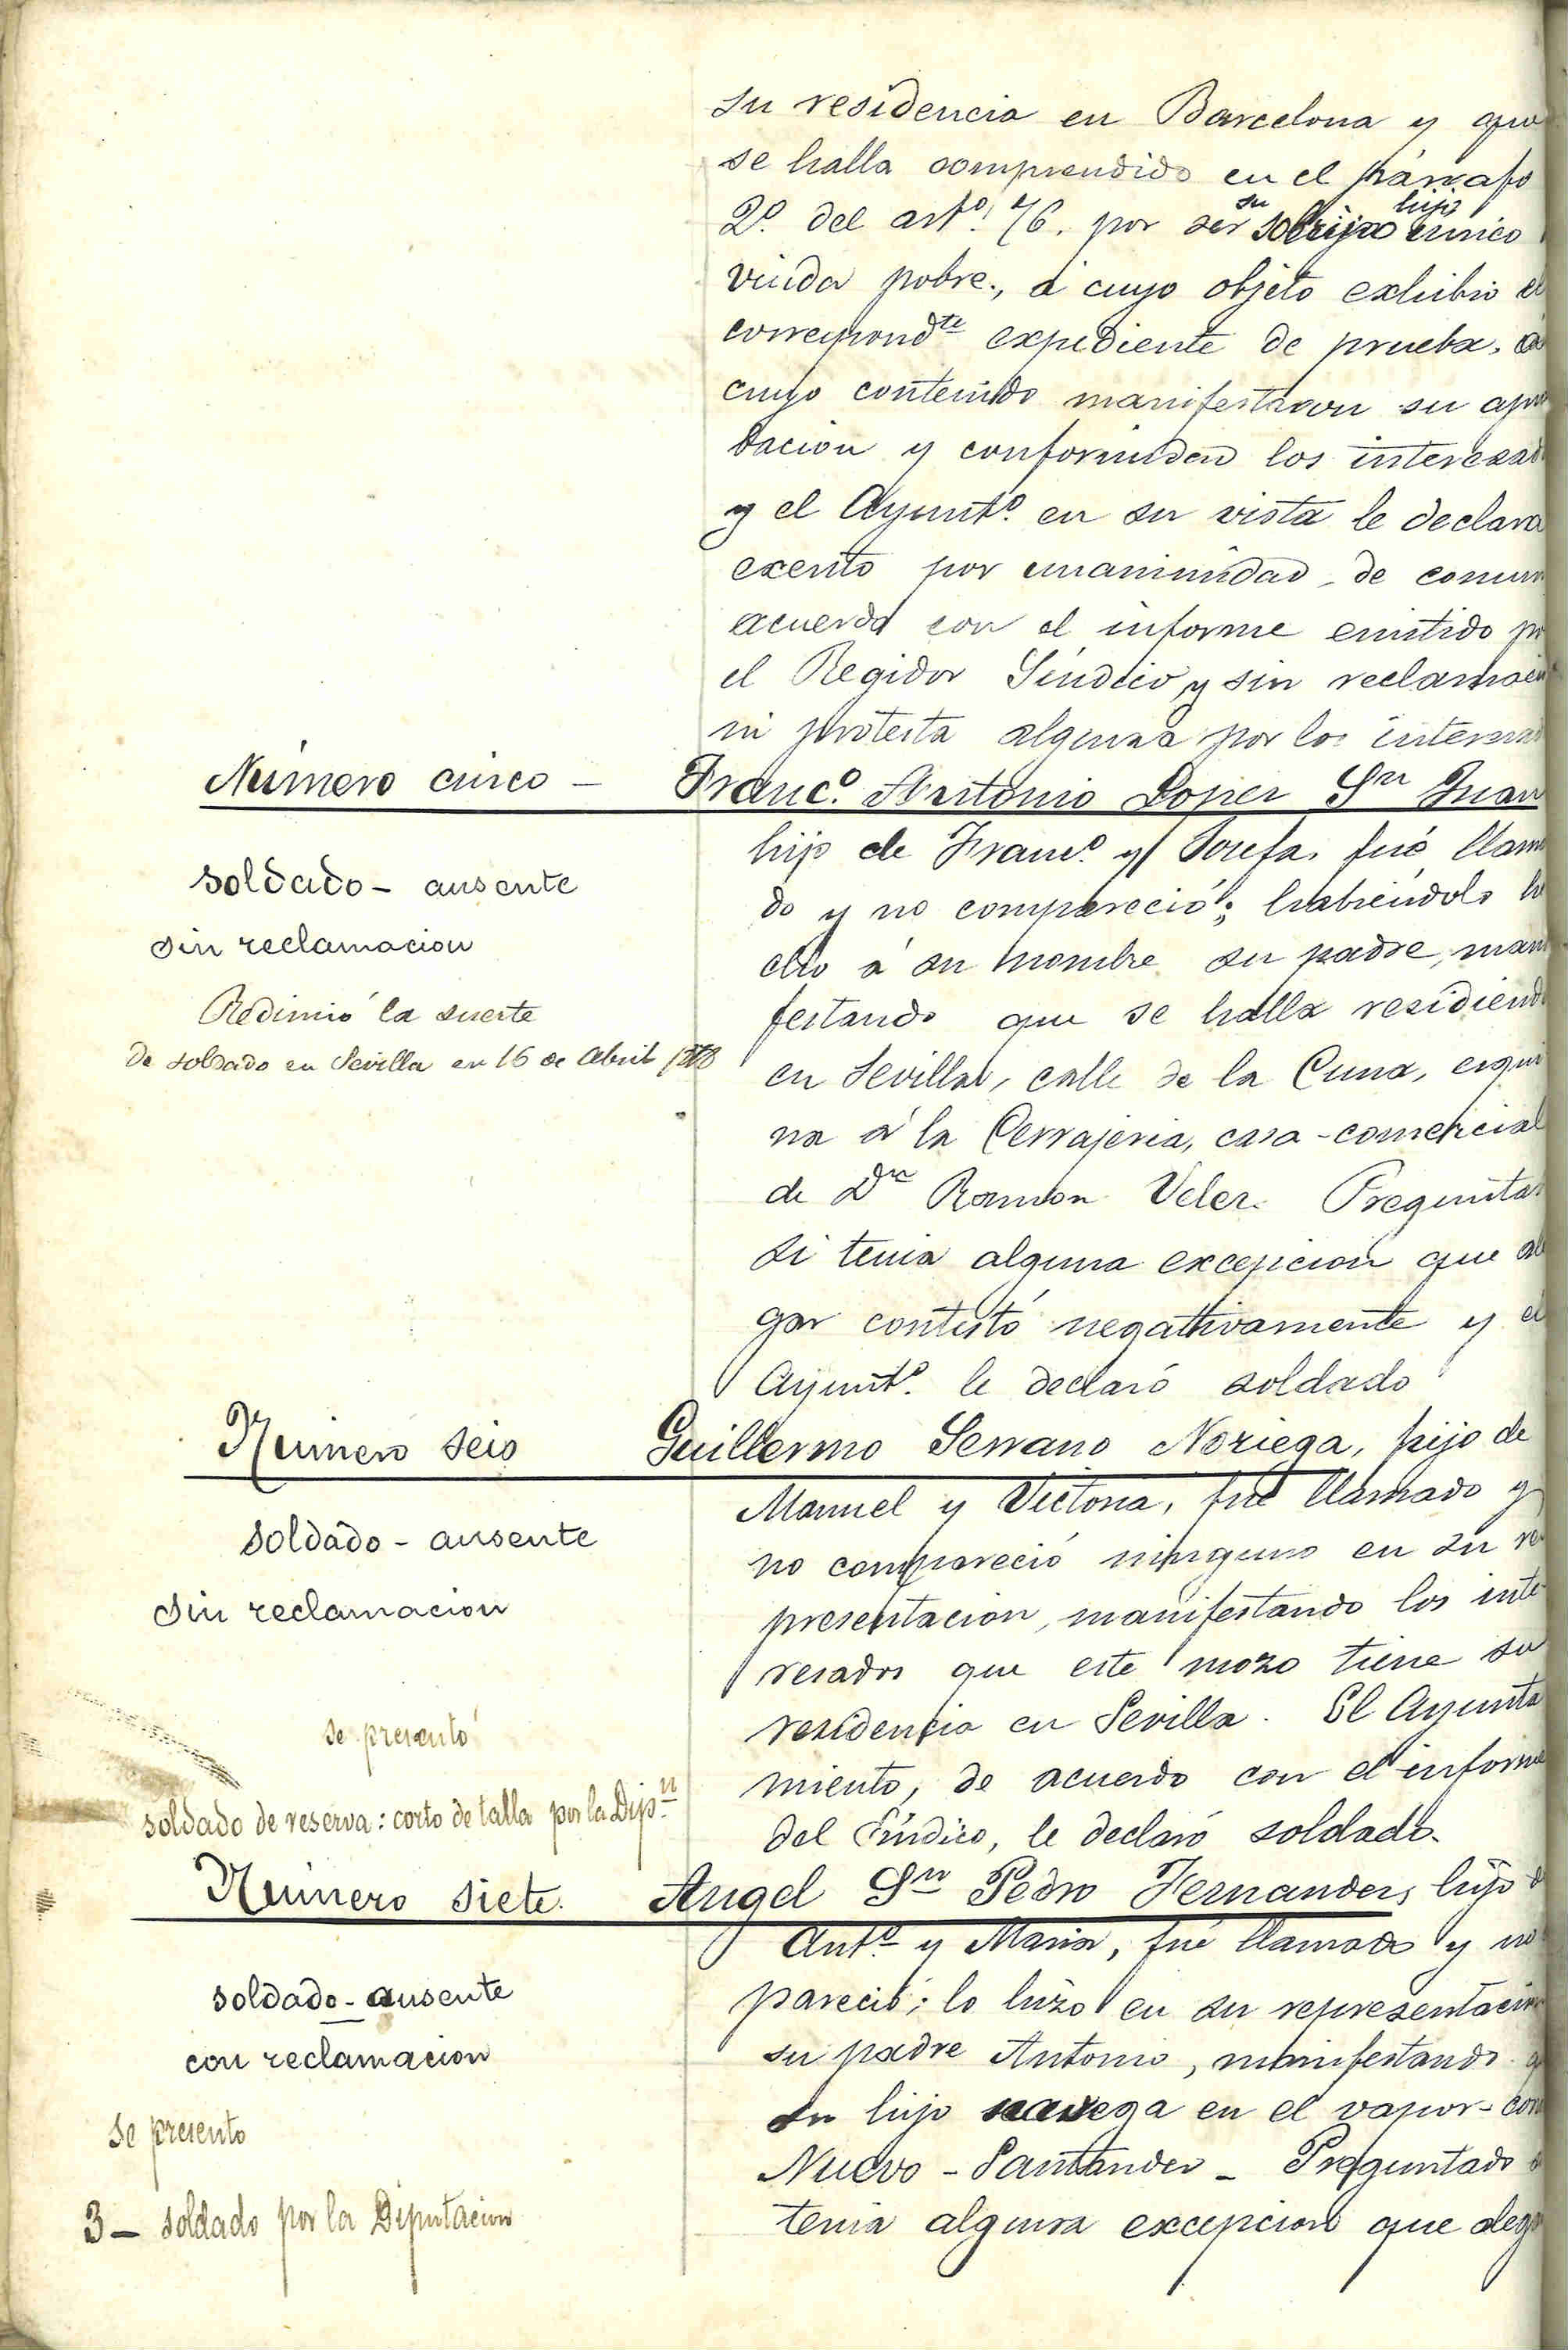 su residencia en Barcelona y que
se halla comprendido en el párrafo
su hijo
2º del artº 76. por ser sobrino unico
viuda pobre., á cuyo objeto exhibio el
correspondte expediente de prueba, á
cuyo contenido manifestaron su apro
bacion y conformidad los interesad
y el Ayuntº en su vista le declara
exento por unanimidad de comun
acuerdo con el informe emitido po
el Regidor Sindico y sin reclamacion
ni protesta alguna por los interesad
Número cinco – Francº Antonio Lopez Sn Juan
hijo de Francº y Josefa, fué llama
do y no compareció; habiéndolo he
cho á su nombre su padre, mani
festando que se halla residiendo
en Sevilla, calle de la Cuna, esqui
na á la Cerrajeria, casa-comercial
de Dn Ramon Velez. Preguntad
si tenia alguna excepcion que ale
gar contestó negativamente y el
Ayuntº le declaró soldado
soldado – ausente
sin reclamacion
Redimió la suerte
de soldado en Sevilla en 16 de Abril 1878
Número seis Guillermo Serrano Noriega, hijo de
Manuel y Victoria, fué llamado y
no compareció ninguno en su re
presentacion, manifestando los inte
resados que este mozo tiene su
residencia en Sevilla. El Ayunta
miento, de acuerdo con el informe
del Síndico, le declaró soldado.
soldado – ausente
sin reclamacion
se presentó
soldado de reserva: corto de talla por la Dipn
Número siete. Angel Sn Pedro Fernandez, hijo d
Antº y Maria, fué llamado y no
pareció; lo hizo en su representacion
su padre Antonio, manifestando q
su hijo navega en el vapor-cor
Nuevo-Santander – Preguntado s
tenia alguna excepcion que alega
soldado – ausente
con reclamacion
se presento
3 – soldado por la Diputacion